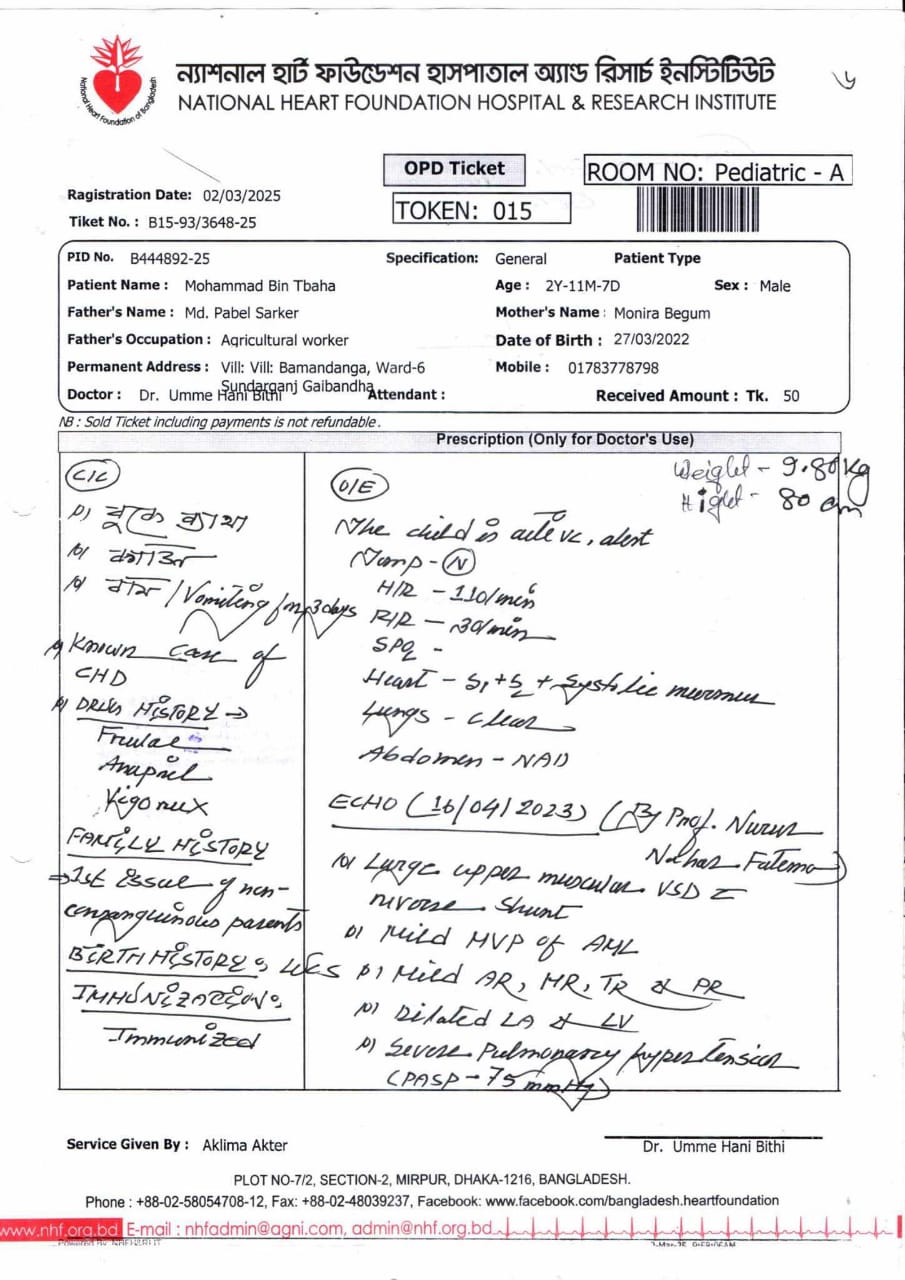 National Heart Foundation of Bangladesh
ন্যাশনাল হার্ট ফাউন্ডেশন হাসপাতাল অ্যান্ড রিসার্চ ইনস্টিটিউট
NATIONAL HEART FOUNDATION HOSPITAL & RESEARCH INSTITUTE
OPD Ticket
ROOM NO: Pediatric - A
Ragistration Date: 02/03/2025
TOKEN: 015
Tiket No. : B15-93/3648-25
PID No. B444892-25 Specification: General Patient Type
Patient Name : Mohammad Bin Tbaha Age : 2Y-11M-7D Sex : Male
Father's Name : Md. Pabel Sarker Mother's Name : Monira Begum
Father's Occupation : Agricultural worker Date of Birth : 27/03/2022
Permanent Address : Vill: Vill: Bamandanga, Ward-6 Mobile : 01783778798
Sundarganj Gaibandha
Doctor : Dr. Umme Hani Bithi Attendant : Received Amount : Tk. 50
NB : Sold Ticket including payments is not refundable.
Prescription (Only for Doctor's Use)
Weight - 9.80 kg
Hight - 80 cm
C/C
বুকে ব্যথা
/ Vomiting for 3 days
Known case of
CHD
DRUG HISTORY →
Frulac
Anapril
FAMILY HISTORY
⇒ 1st issue of non-
consanguinous parents
BIRTH HISTORY: LUCS
IMMUNIZATION:
Immunized
O/E
The child is active, alert
- N
H/R - 110/min
R/R - 30/min
SPO2 -
Heart - S1 + S2 + Systolic murmur
Lungs - clear
Abdomen - NAD
ECHO (16/04/2023) (By Prof. Nurun
Nahar Fatema)
Large upper muscular VSD
reverse shunt
Mild MVP of AML
Mild AR, MR, TR & PR
Dilated LA & LV
Severe Pulmonary hypertension
(PASP - 75 mmHg)
Service Given By : Aklima Akter
Dr. Umme Hani Bithi
PLOT NO-7/2, SECTION-2, MIRPUR, DHAKA-1216, BANGLADESH.
Phone : +88-02-58054708-12, Fax: +88-02-48039237, Facebook: www.facebook.com/bangladesh.heartfoundation
www.nhf.org.bd E-mail : nhfadmin@agni.com, admin@nhf.org.bd